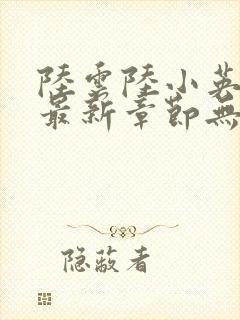 陸雲陸小英
最新章節無
隐蔽者